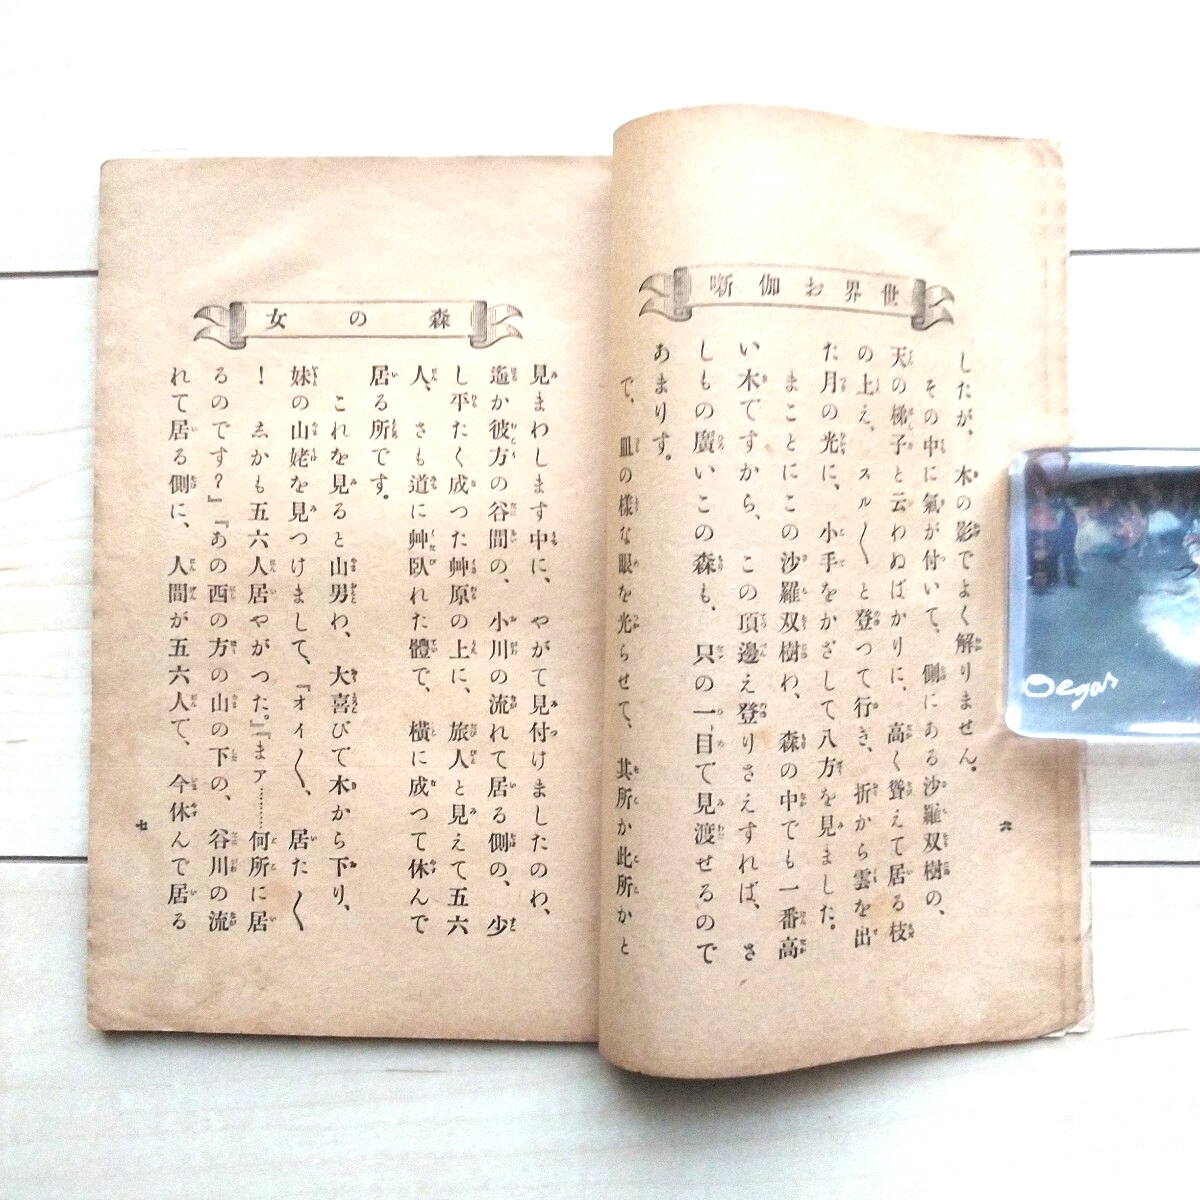 世界お伽噺
したが、木の影でよく解りません。
その中に氣が付いて、側にある沙羅双樹の、
天の梯子と云わぬばかりに、高く聳えて居る枝
の上え、スル〱と登つて行き、折から雲を出
た月の光に、小手をかざして八方を見ました。
まことにこの沙羅双樹わ、森の中でも一番高
い木ですから、この頂邊え登りさえすれば、さ
しもの廣いこの森も、只の一目で見渡せるので
あまりす。
で、皿の樣な眼を光らせて、其所か此所かと
六
森の女
見まわします中に、やがて見付けましたのわ、
遙か彼方の谷間の、小川の流れて居る側の、少
し平たく成つた艸原の上に、旅人と見えて五六
人、さも道に艸臥れた體で、横に成つて休んで
居る所です。
これを見ると山男わ、大喜びで木から下り、
妹の山姥を見つけまして、『オイ〱、居た〱
！ゑかも五六人居やがつた。』『まア………何所に居
るのです？』『あの西の方の山の下の、谷川の流
れて居る側に、人間が五六人で、今休んで居る
七
Degas